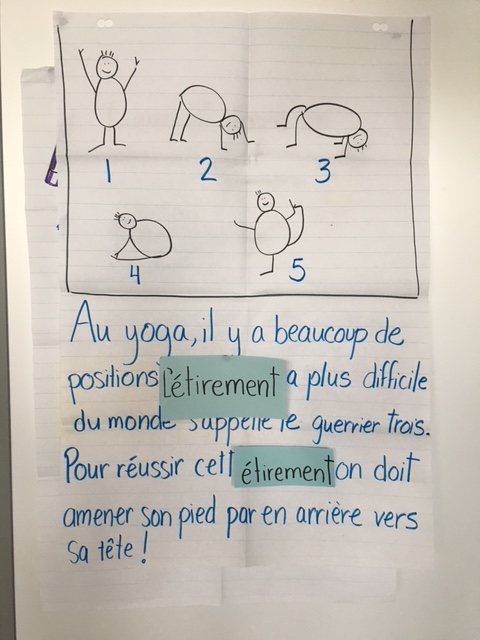 1
2
3
4
5
Au yoga, il y a beaucoup de
positions L'étirement a plus difficile
du monde s'appelle le guerrier trois.
Pour réussir cett étirement on doit
amener son pied par en arrière vers
sa tête !